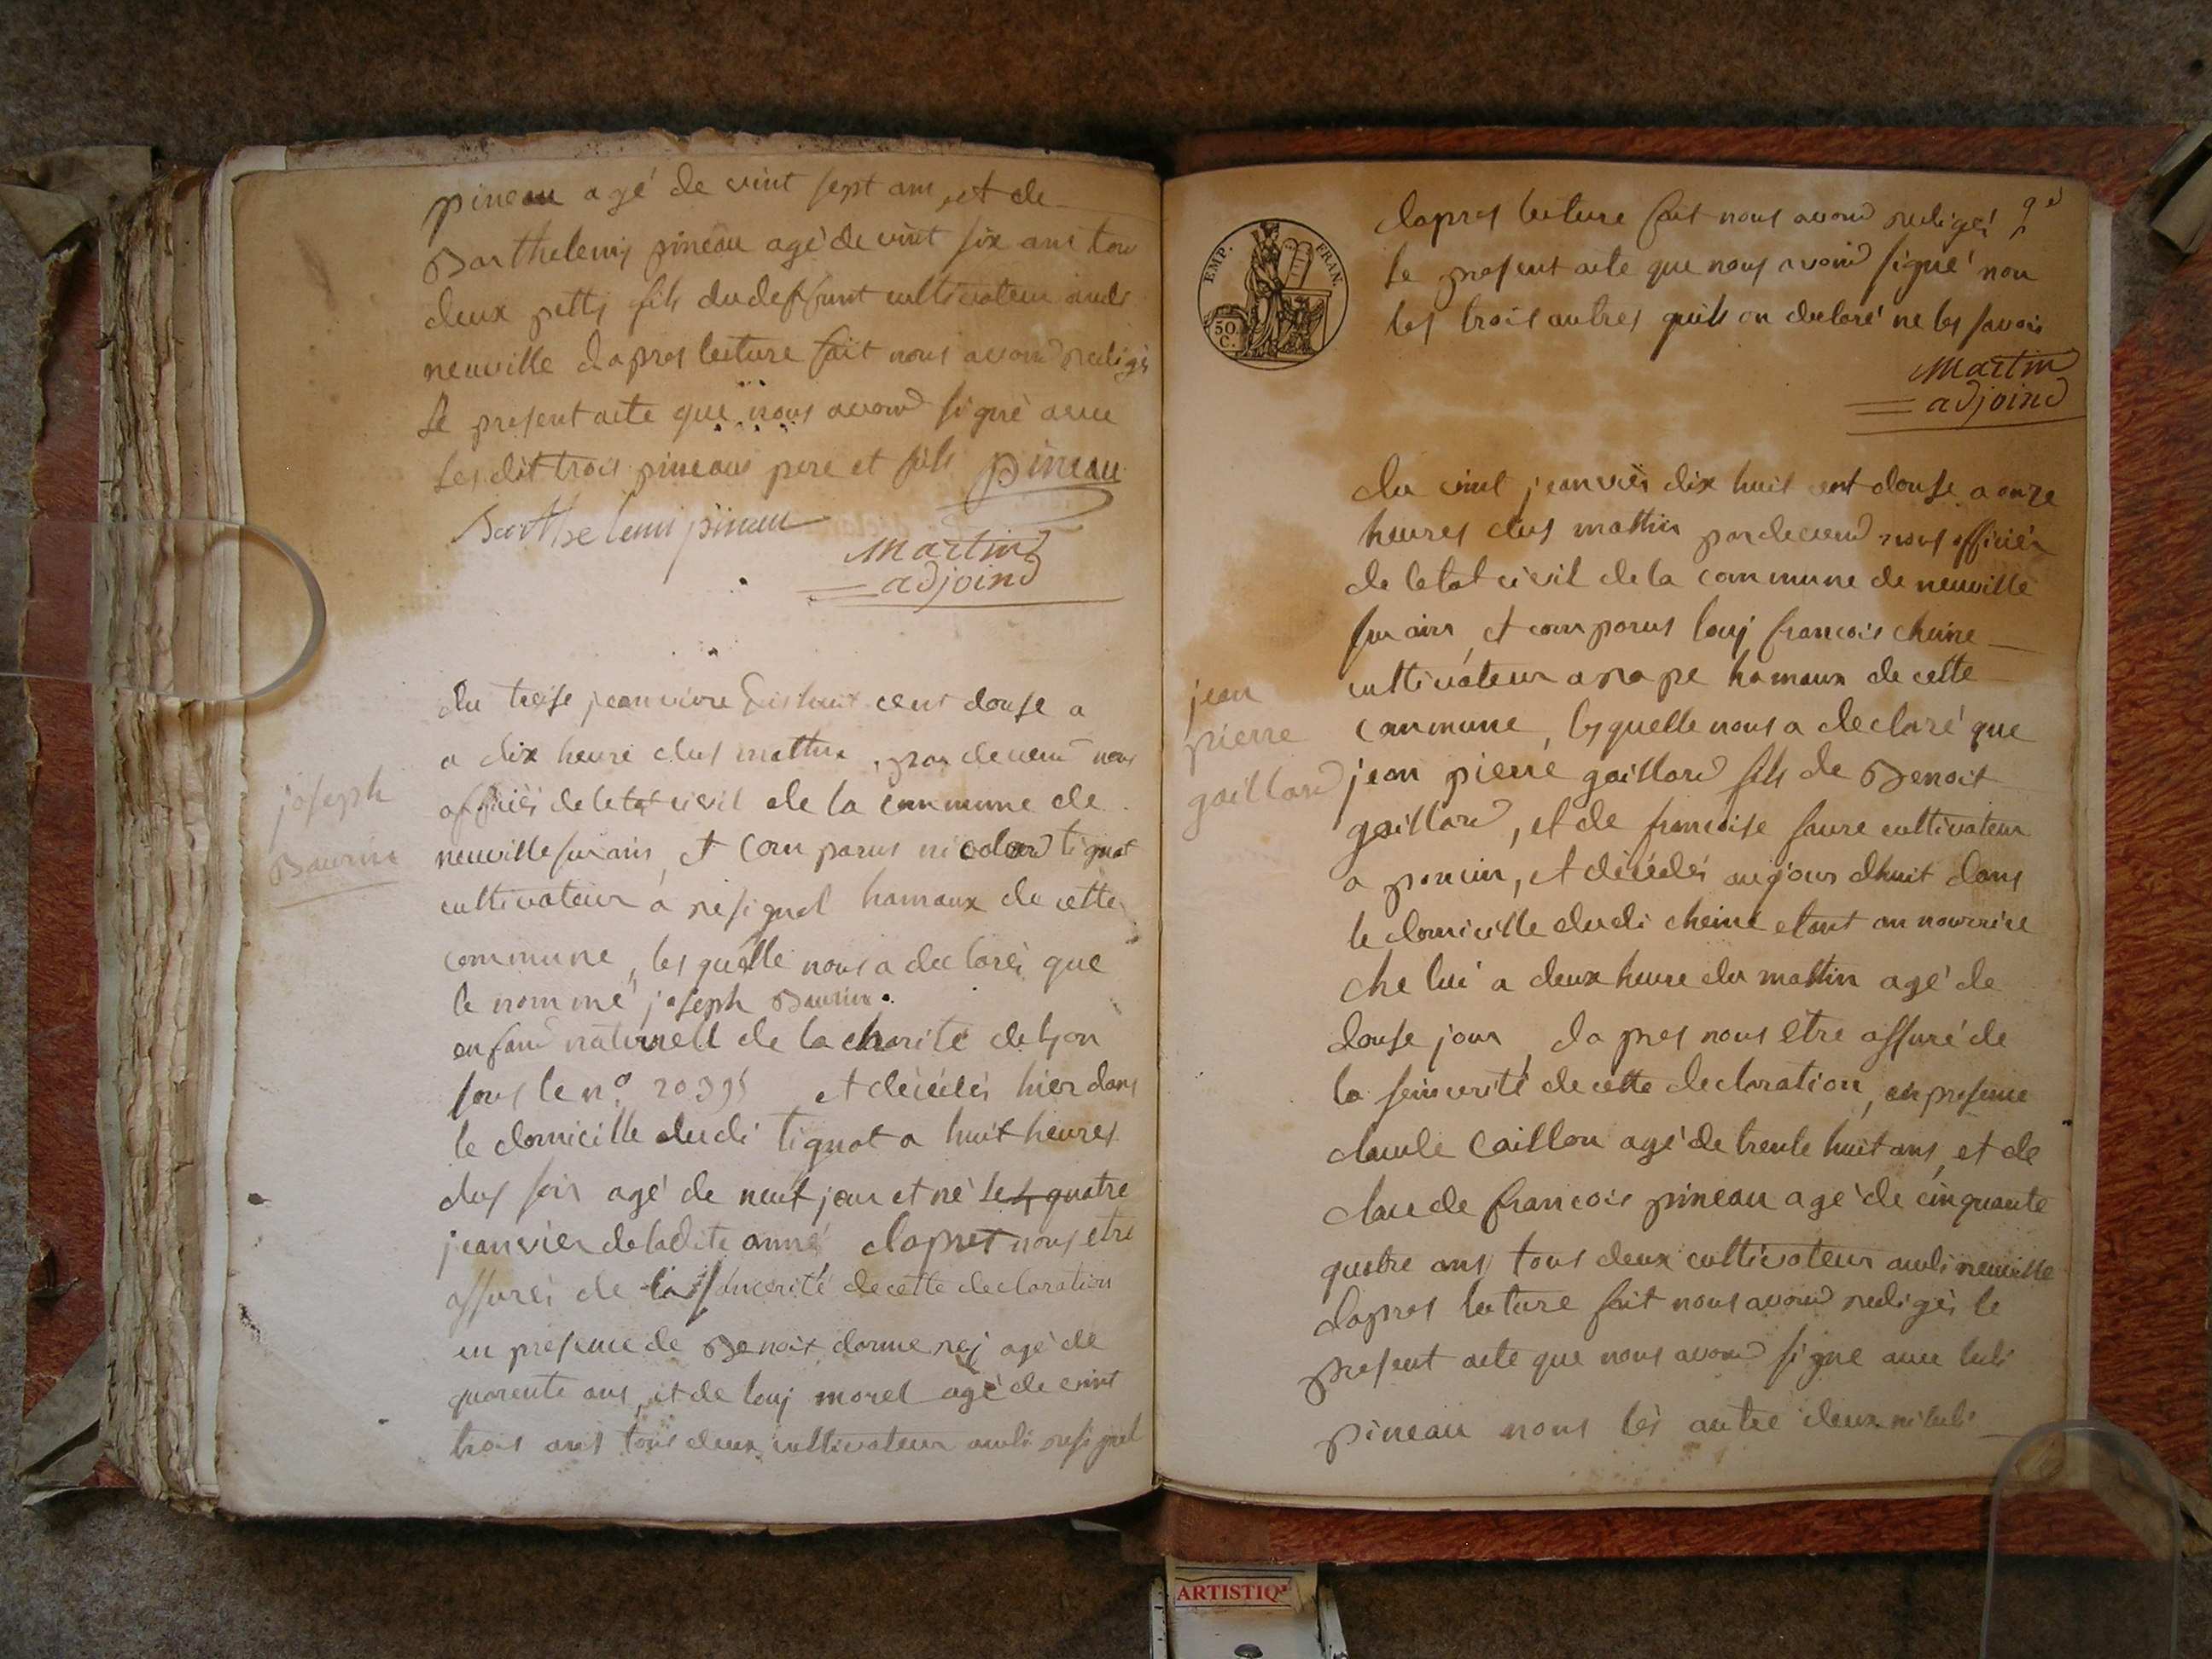 pineau agé de vint sept ans, et de
Barthelemy pineau agé de vint six ans tou
deux petty fils dudeffunt cultivateur audi
neuville dapres lecture fait nous avond redigé
Le present acte que nous avond signé avec
Les dit trois pineaus pere et fils pineau
Barthelemi pineau
Martin
adjoind
du treise jeanvire dixhuit cent douse a
a dix heure dus mattin, par devend nous
officiér de letat civil de la commune de
neuville sur ains, et comparus nicolard tignat
cultivateur a resignel hamaux de cette
commune, lesquelle nous a declarés que
le nommé joseph Baurin.
enfand naturell de la charité de Lyon
sous le n.º et décédés hier dans
le domicille dudi tignat a huit heures
dus soir agé de neuf jour et né le 4 quatre
jeanvier deladite anné dapret nous etre
assurés de la sincerité decette declaration
en presence de Benoit agé de
quarente ans, et de louj morel agé de vint
trois ans tous deux cultivateur audi resignel
joseph
Baurin
EMP. FRAN.
50.
C.
dapres lecture fait nous avond redigés
le present acte que nous avond signé non
les trois autres quils on declaré ne les savoir
Martin
adjoind
du vint jeanviér dix huit cent douse a onze
heures dus mattin pardevend nous officiér
de letat civil de la commune de neuville
sur ains, et comparus louj francois cheine
cultivateur a rape hamaux de cette
commune, lesquelle nous a declaré que
jean pierre gaillard fils de Benoit
gaillard, et de francoise favre cultivateur
a poncin, et décédés aujour dhuit dans
le domicille dudi cheine etant an nourrice
che lui a deux heure du mattin agé de
douse jour, da pres nous etre assuré de
la seincerité de cette declaration, en presence
claude Caillon agé de trente huit ans, et de
claude francois pineau agé de cinquante
quatre ans, tous deux cultivateur audi neuville
dapres lecture fait nous avond redigés le
present acte que nous avond signe avec ledi
pineau nous lés autre deux
jean
pierre
gaillard
ARTISTIQ